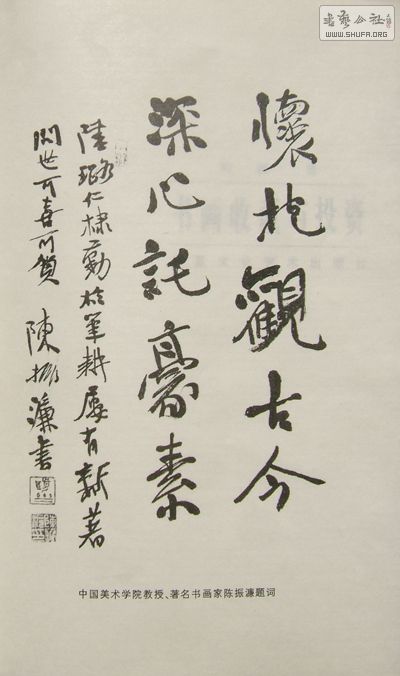 懷抱觀古今
深心託毫素
陸璐仁棣勤於筆耕屢有新著
問世可喜可賀 陳振濂書
中国美术学院教授、著名书画家陈振濂题词
書藝公社
WWW.SHUFA.ORG